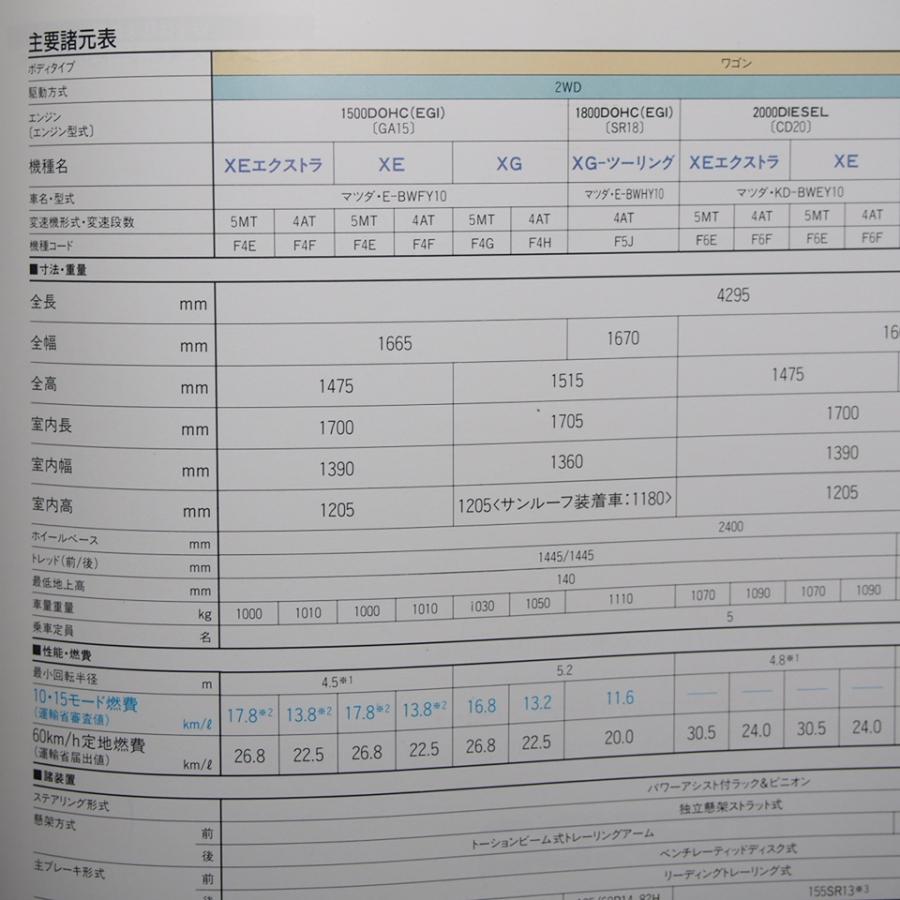 主要諸元表
ボディタイプ ワゴン
駆動方式 2WD
エンジン 1500DOHC(EGI) 1800DOHC(EGI) 2000DIESEL
〔エンジン型式〕 〔GA15〕 〔SR18〕 〔CD20〕
機種名 XEエクストラ XE XG XG-ツーリング XEエクストラ XE
車名・型式 マツダ・E-BWFY10 マツダ・E-BWHY10 マツダ・KD-BWEY10
変速機形式・変速段数 5MT 4AT 5MT 4AT 5MT 4AT 4AT 5MT 4AT 5MT 4AT
機種コード F4E F4F F4E F4F F4G F4H F5J F6E F6F F6E F6F
■寸法・重量
全長 mm 4295
全幅 mm 1665 1670
全高 mm 1475 1515 1475
室内長 mm 1700 1705 1700
室内幅 mm 1390 1360 1390
室内高 mm 1205 1205〈サンルーフ装着車:1180〉 1205
ホイールベース mm 2400
トレッド(前/後) mm 1445/1445
最低地上高 mm 140
車量重量 kg 1000 1010 1000 1010 1030 1050 1110 1070 1090 1070 1090
乗車定員 名 5
■性能・燃費
最小回転半径 m 4.5※1 5.2 4.8※1
10・15モード燃費 km/ℓ 17.8※2 13.8※2 17.8※2 13.8※2 16.8 13.2 11.6 — — — —
(運輸省審査値)
60km/h定地燃費 km/ℓ 26.8 22.5 26.8 22.5 26.8 22.5 20.0 30.5 24.0 30.5 24.0
(運輸省届出値)
■諸装置
ステアリング形式 パワーアシスト付ラック&ピニオン
懸架方式 前 独立懸架ストラット式
後 トーションビーム式トレーリングアーム
主ブレーキ形式 前 ベンチレーティッドディスク式
後 リーディングトレーリング式
155SR13※3